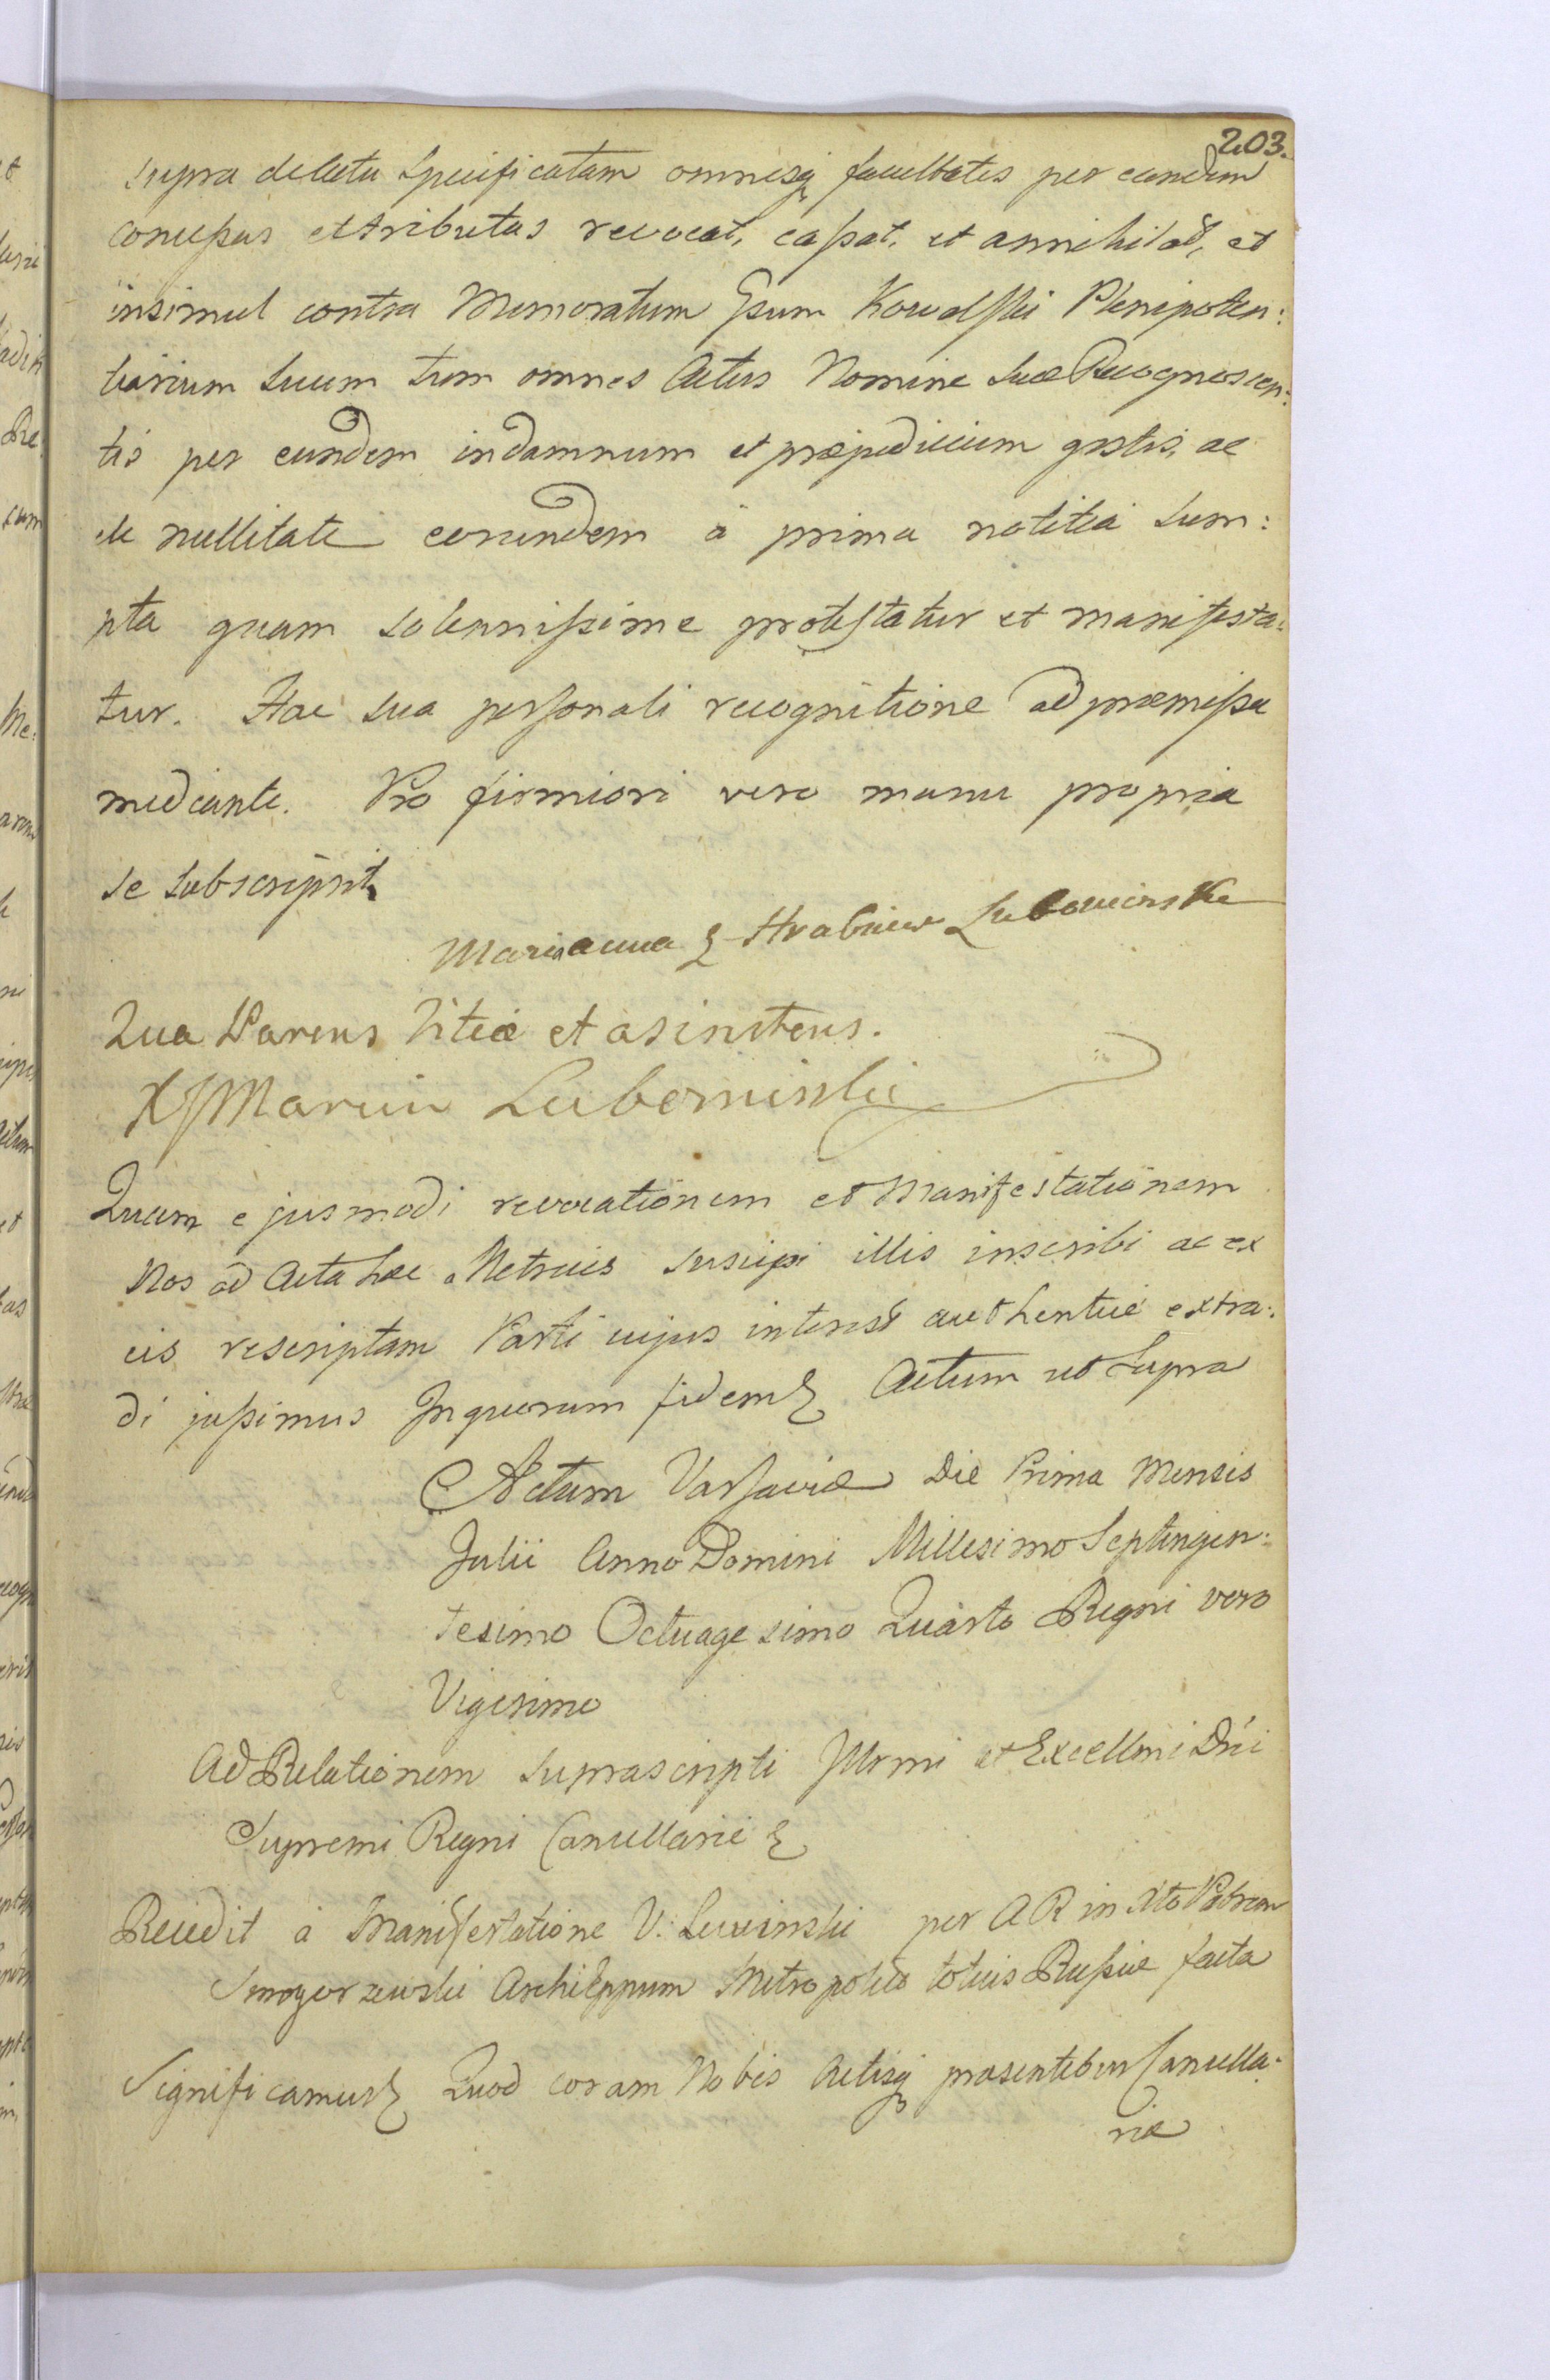 203.
supra de data specificatam omnesq facultates per eandem
concessas attributas revocat, cassat, et annihilat, et
insimul contra Memoratum Gsum Kowalski Plenipoten:
tiarium Suum tum omnes Actus Nomine suae Recognoscen:
tis per eundem in damnum et praejudicium gestos, ac
de nullitate eorundem à prima notitia sum:
pta quam solennissime protestatur et manifesta:
tur. Hac sua personali recognitione ad praemissa
mediante. Pro firmiori vero manu propria
se subscripsit
Marianna z Hrabiow Lubomirska
Qua Parens Filiae et asistens.
X J Marcin Lubomirski
Quam ejusmodi revocationem et Manifestationem
Nos ad Acta haec Metrices suscipi illis inscribi ac ex
eis rescriptam Parti cujus interest authentice extra:
di jussimus In quorum fidem Actum ut Supra
Actum Varsaviae Die Prima Mensis
Julii Anno Domini Millesimo Septingen:
tesimo Octuagesimo Quarto Regni vero
Vigesimo
Ad Relationem suprascripti Illrmi et Excellmi Dni
Supremi Regni Cancellarii
Recedit à Manifestatione V. Lewinski per A R in Xto Patrem
Smogorzewski Archieppum Metropolit totius Russiae facta
Significamus Quod coram Nobis Actisq praesentibus Cancella:
riae